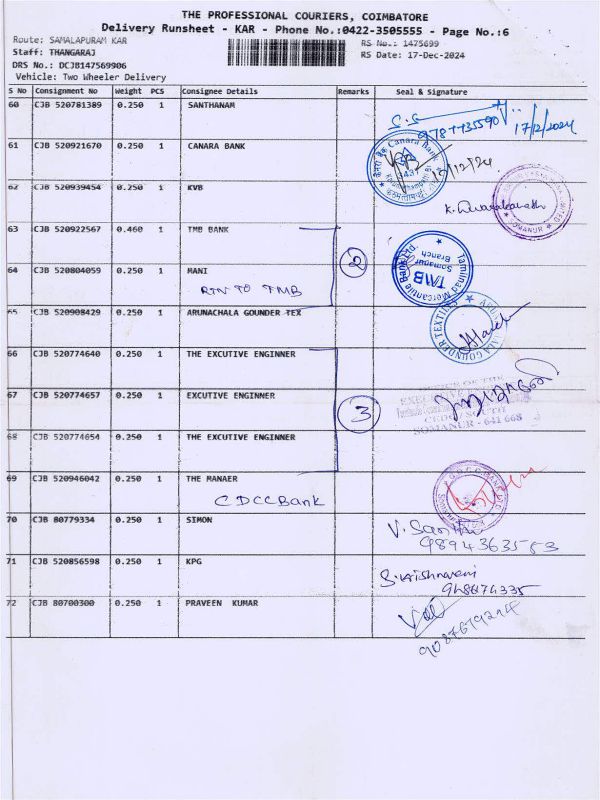 THE PROFESSIONAL COURIERS, COIMBATORE
Delivery Runsheet - KAR - Phone No.:0422-3505555 - Page No.:6
Route: SAMALAPURAM KAR
RS No.: 1475699
Staff: THANGARAJ
RS Date: 17-Dec-2024
DRS No.: DCJB147569906
Vehicle: Two Wheeler Delivery
S No Consignment No Weight PCS Consignee Details Remarks Seal & Signature
60 CJB 520781389 0.250 1 SANTHANAM
17/12/2024
61 CJB 520921670 0.250 1 CANARA BANK
Canara Bank
62 CJB 520939454 0.250 1 KVB
SOMANUR
63 CJB 520922567 0.460 1 TMB BANK
2
Tamilnad Mercantile Bank Ltd.
TMB
Somanur Branch
64 CJB 520804059 0.250 1 MANI
RTN TO TMB
65 CJB 520908429 0.250 1 ARUNACHALA GOUNDER TEX
66 CJB 520774640 0.250 1 THE EXCUTIVE ENGINNER
67 CJB 520774657 0.250 1 EXCUTIVE ENGINNER
3
SOMANUR - 641 668
68 CJB 520774654 0.250 1 THE EXCUTIVE ENGINNER
69 CJB 520946042 0.250 1 THE MANAER
CDCCBank
70 CJB 80779334 0.250 1 SIMON
9894363553
71 CJB 520856598 0.250 1 KPG
72 CJB 80700300 0.250 1 PRAVEEN KUMAR